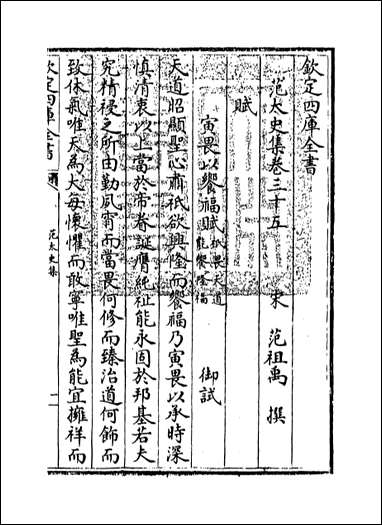 欽定四庫全書
范太史集卷三十五
宋 范祖禹 撰
賦
寅畏以饗福賦 祇畏天道能饗隆福 御試
天道昭顯聖心肅祇欲興隆而饗福乃寅畏以承時深
慎清衷以上當於帝眷誕膺純祉能永固於邦基若夫
究精祲之所由勤夙宵而當畏何修而臻治道何飾而
致休氣唯天為大每懷懼而敢寧唯聖為能宜擁祥而
欽定四庫全書
范太史集
一